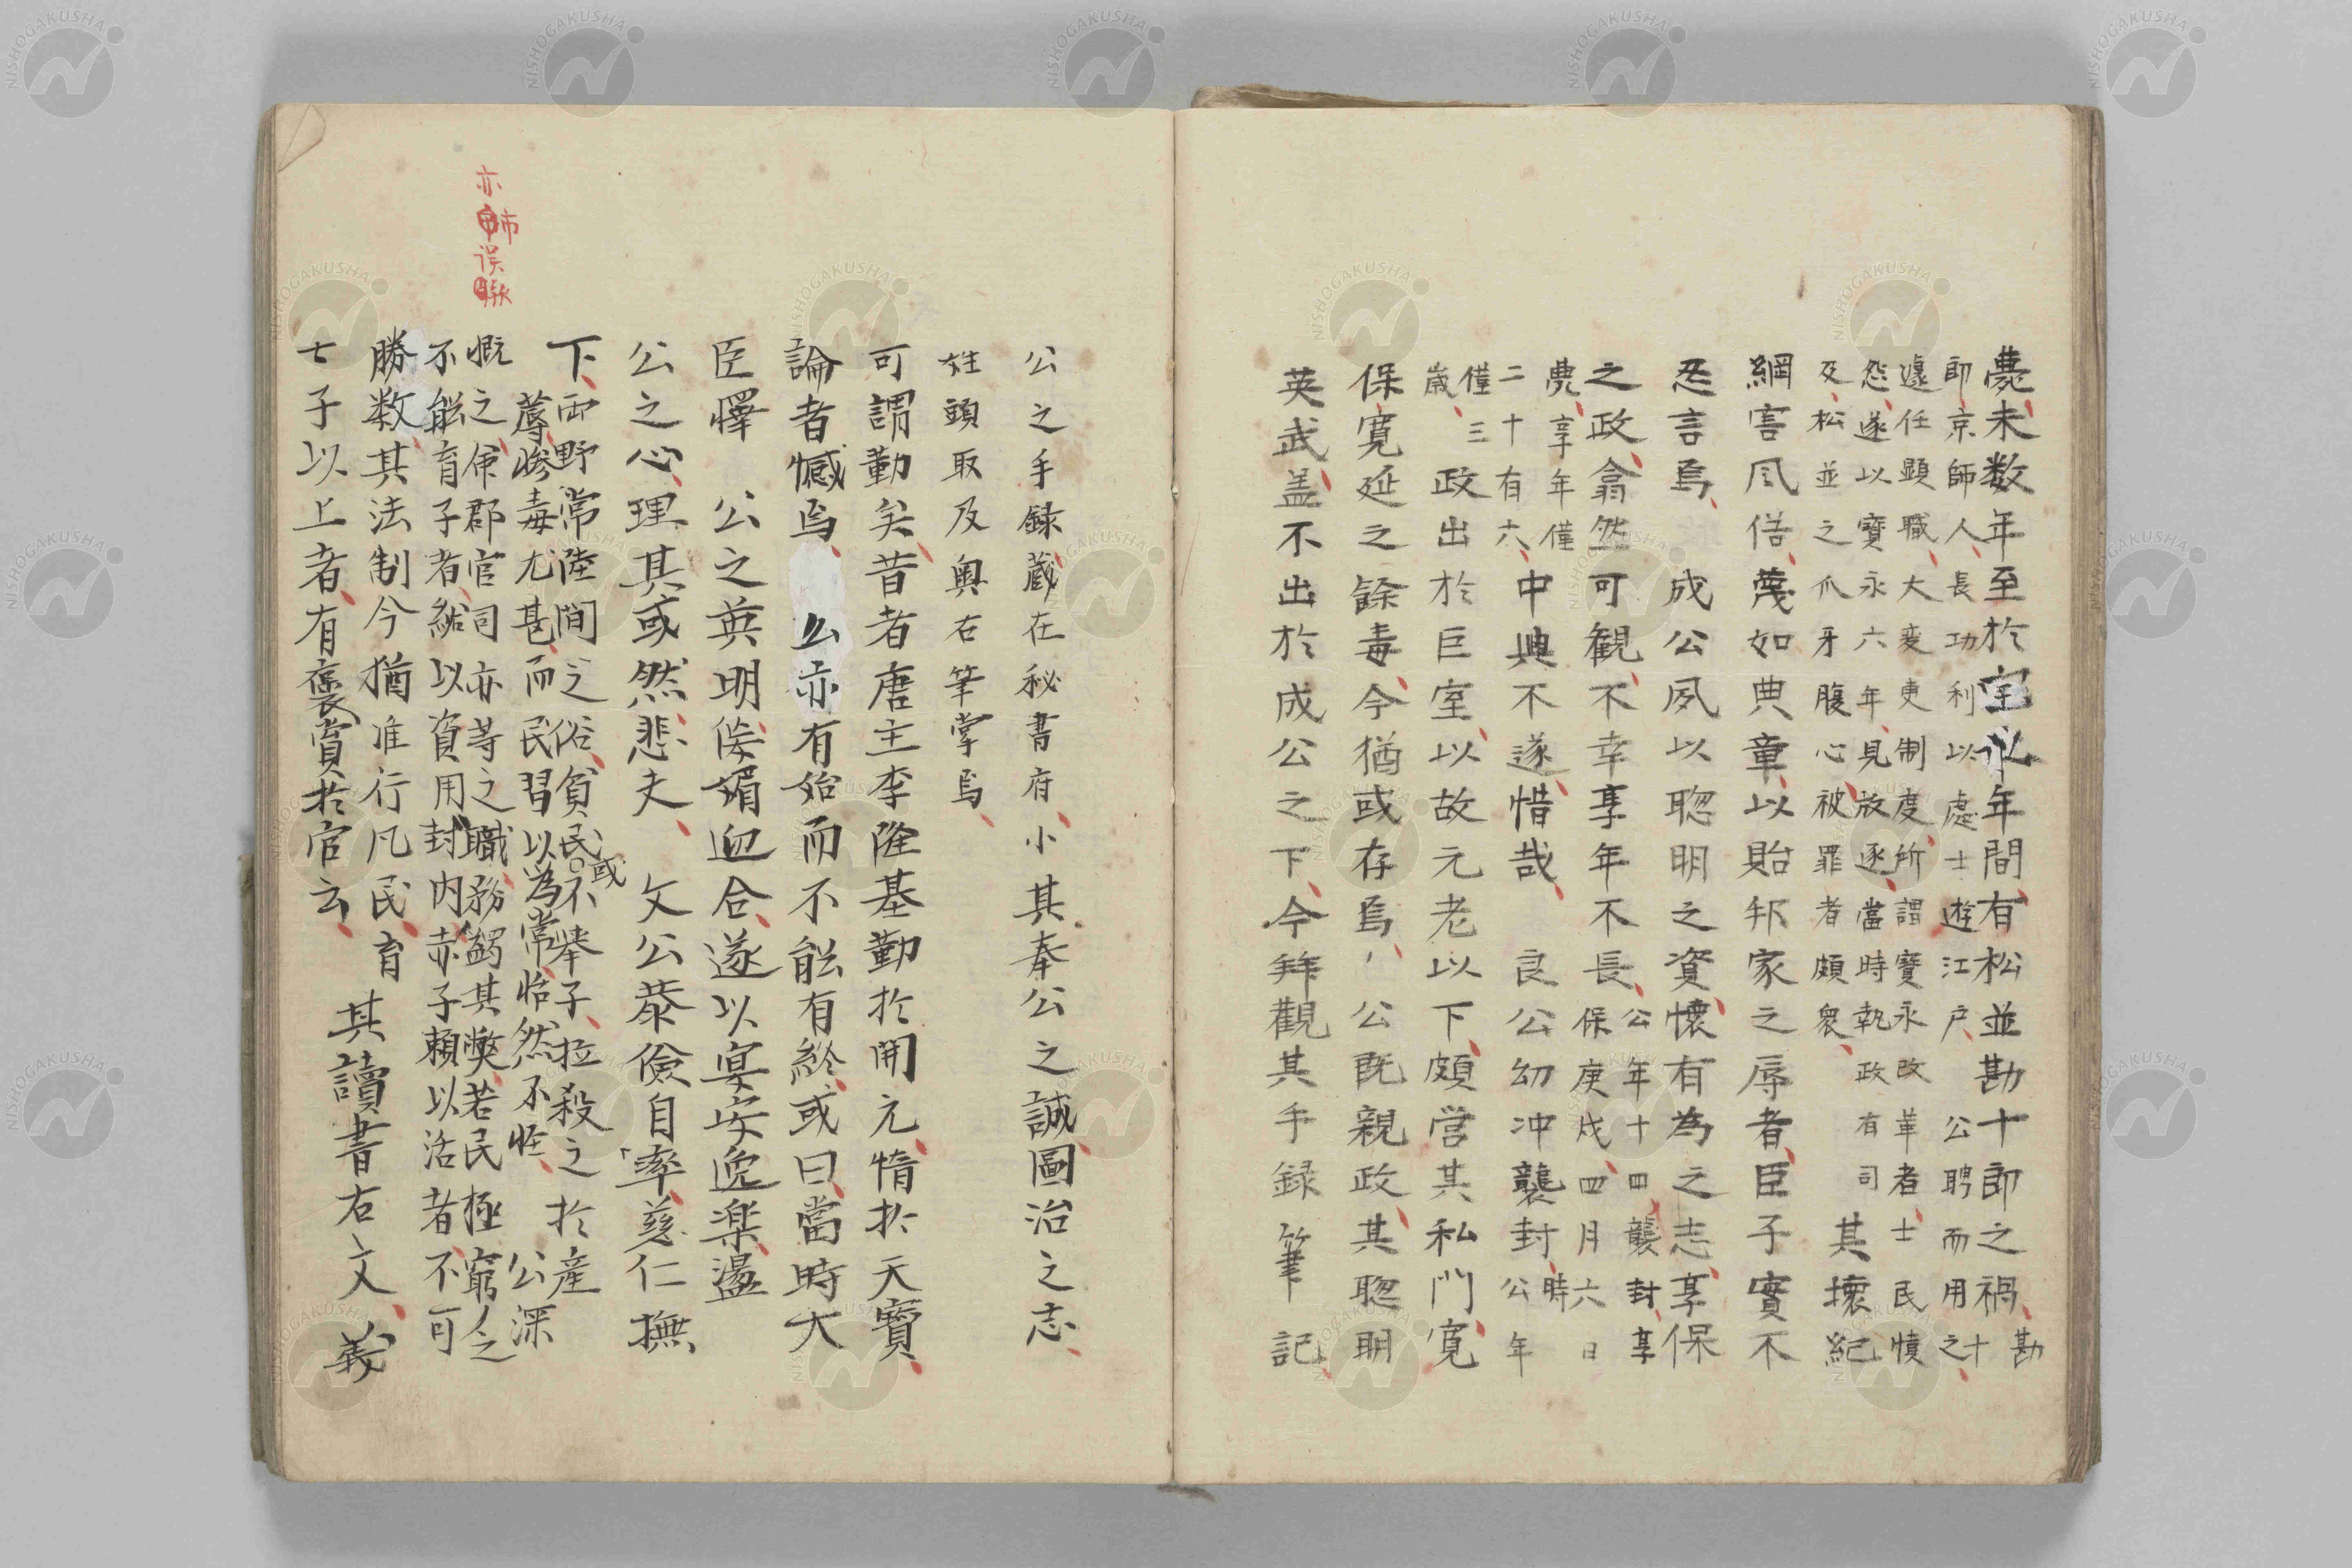 薨未数年至於宝永年間有松並勘十郎之禍勘十
郎京師人長功利以處士遊江戸公聘而用之
遽任顕職大変更制度所謂寳永改革者士民憤
怨遂以寳永六年見放逐當時執政有司
及松並之爪牙腹心被罪者頗衆其壊紀
綱害風俗蔑如典章以貽邦家之辱者臣子實不
忍言焉成公夙以聡明之資懐有為之志享保
之政翕然可観不幸享年不長公年十四襲封享
保庚戌四月六日
薨享年僅
二十有六中興不遂惜哉良公幼冲襲封時公年
僅三
歳政出於巨室以故元老以下頗営其私門寛
保寛延之餘毒今猶或存焉公既親政其聡明
英武盖不出於成公之下今拜觀其手録筆記
公之手録蔵在秘書府小其奉公之誠圖治之志
姓頭取及奥右筆掌焉
可謂勤矣昔者唐主李隆基勤於開元惰於天寳
論者憾焉公亦有始而不能有終或曰當時大
臣憚公之英明俟媚迎合遂以宴安逸楽盪
公之心理其或然悲夫文公恭儉自率慈仁撫
下而野常陸間之俗貧民或不挙子拉殺之於産
蓐惨毒尤甚而民習以為常恬然不怪公深
慨之使郡官司亦等之職務蠲其獘若民極窮之
不能育子者給以資用封内赤子頼以活者不可
勝数其法制今猶准行凡民育
七子以上者有褒賞於官云其讀書右文義
亦師誤歟